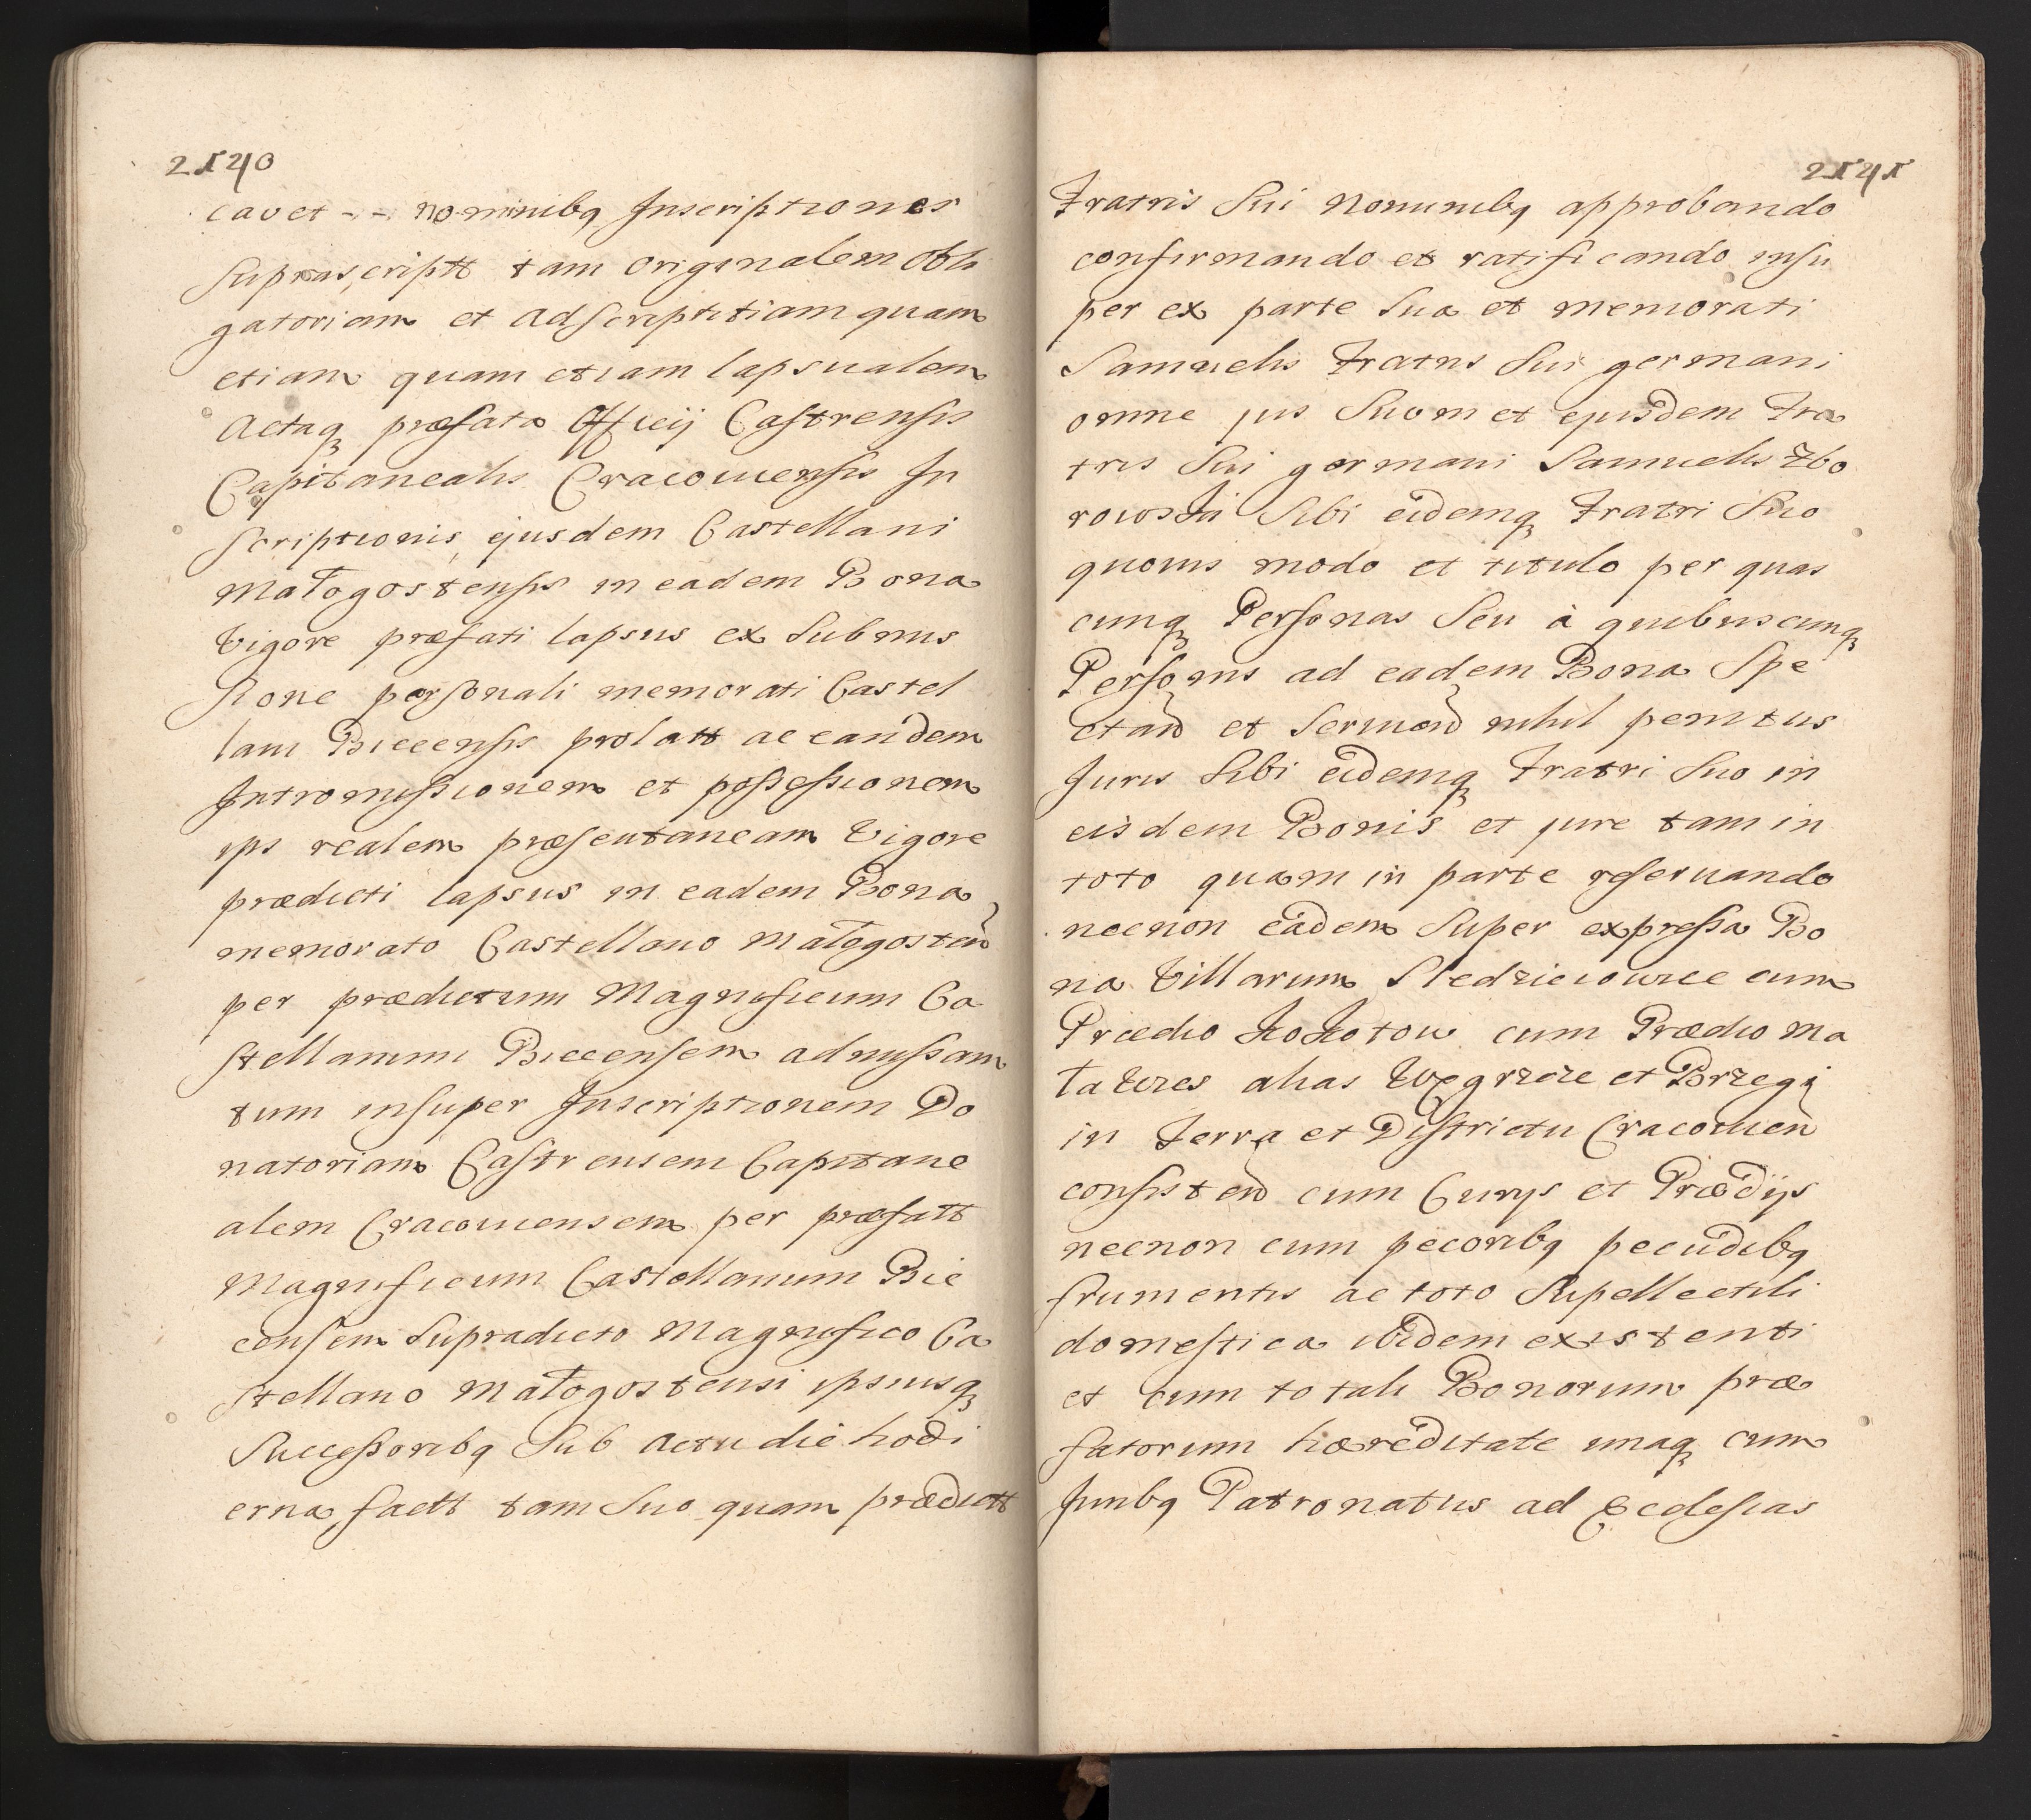 2140
cavet - - nominibq Inscriptiones
Suprascriptt tam originalem Obli
gatoriam et adscriptitiam quam
etiam quam etiam lapsualem
Actaq præfata Officij Castrensis
Capitanealis Cracoviensis In
scriptionis ejusdem Castellani
Małogostensis in eadem Bona
Vigore præfati lapsus ex Submis
sione personali memorati Castel
lani Biecensis prolatt ac eandem
Intromissionem et possessionem
ips realem præsentaneam Vigore
prædicti lapsus in eadem Bona
memorato Castellano Małogosten
per prædictum Magnificum Ca
stellanum Biecensem admissam
tum insuper Inscriptionem Do
natoriam Castrensem Capitane
alem Cracoviensem per præfatt
Magnificum Castellanum Bie
censem Supradicto Magnifico Ca
stellano Małogostensi ipsiusq
Successoribq Sub actu die hodi
erna factt tam Suo quam prædictt
2141
Fratris Sui Nominibq approbando
confirmando et ratificando insu
per ex parte Sua et memorati
Samuelis Fratris Sui germani
omne jus Suom et ejusdem Fra
tris Sui germani Samuelis Zbo
rowski Sibi eidemq Fratri Suo
quovis modo et titulo per quas
cunq Personas Seu à quibuscunq
Personis ad eadem Bona Spe
ctan et Serwien nihil penitus
Juris Sibi eidemq Fratri Suo in
eisdem Bonis et jure tam in
toto quam in parte reservando
necnon eadem Super expressa Bo
na Villarum Sledzieiowice cum
Prædio Kokotow cum Prædio Ma
ła Wies alias Węgrzce et Brzegi
in Terra et Districtu Cracovien
consisten cum Curys et Prædijs
necnon cum pecoribq pecudibq
frumentis ac toto Supellectili
domestica ibidem existenti
et cum totali Bonorum præ
fatorum hæreditate unaq cum
Juribq Patronatus ad Ecclesias